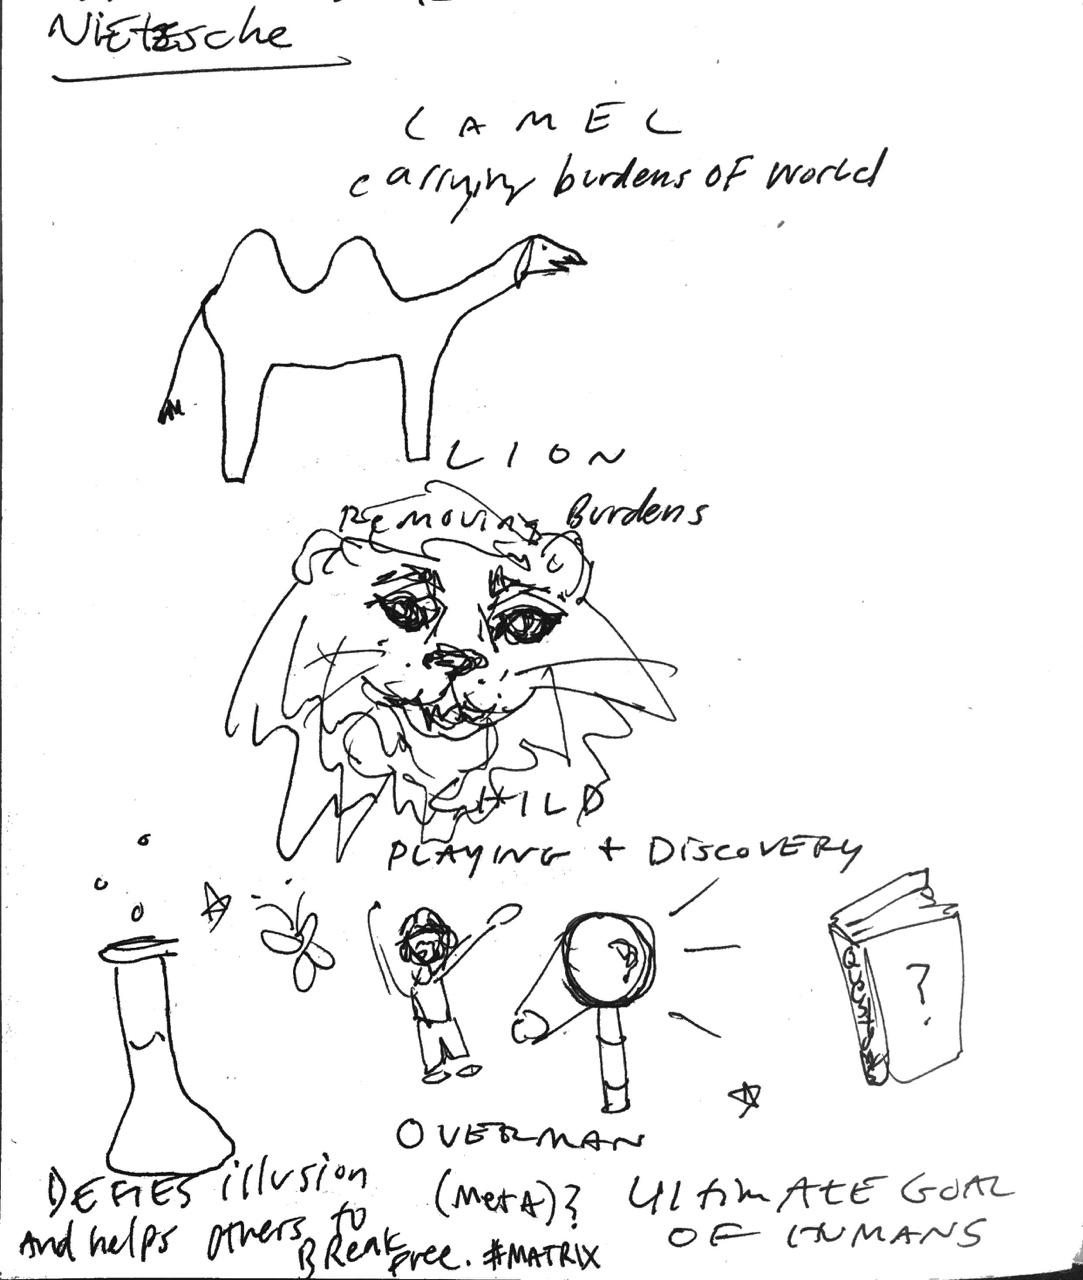 Nietzsche
CAMEL
carrying burdens of world
LION
Removing Burdens
CHILD
PLAYING + DiscovERY
Questions
?
OVERMAN
(MetA)?
DEFIES illusion
And helps others to
BReak free. #MATRIX
UltimATE GOAL
OF HUMANS